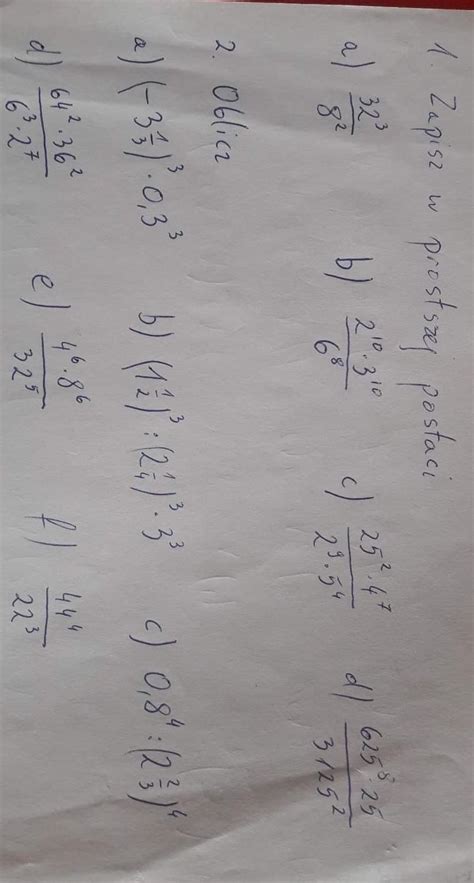 1. Zapisz w prostszej postaci
a) 32³/8² b) 2¹⁰·3¹⁰/6⁸ c) 25²·4⁷/2⁹·5⁴ d) 625⁸·25/3125²
2. Oblicz
a) (-3 1/3)³·0,3³ b) (1 1/2)³:(2 1/4)³·3³ c) 0,8⁴:(2 2/3)⁴
d) 64²·36²/6³·2⁷ e) 4⁶·8⁶/32⁵ f) 44⁴/22³